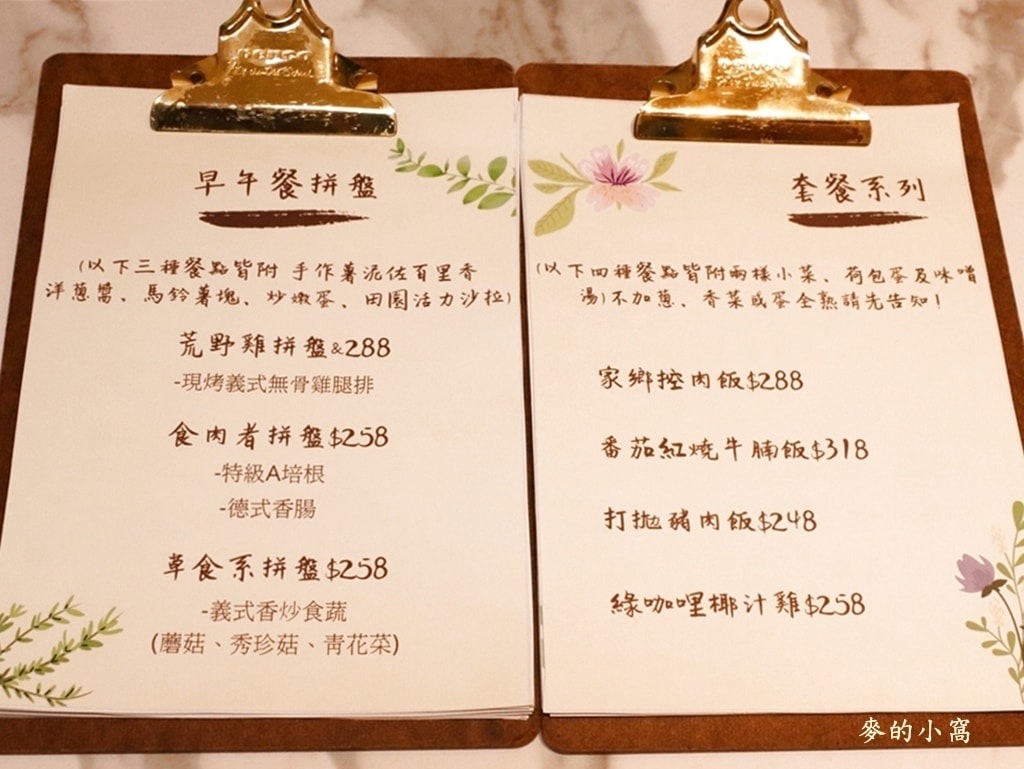 早午餐拼盤
(以下三種餐點皆附 手作薯泥佐百里香
洋蔥醬、馬鈴薯塊、炒嫩蛋、田園活力沙拉)
荒野雞拼盤&288
-現烤義式無骨雞腿排
食肉者拼盤$258
-特級A培根
-德式香腸
草食系拼盤$258
-義式香炒食蔬
(蘑菇、秀珍菇、青花菜)
套餐系列
(以下四種餐點皆附兩樣小菜、荷包蛋及味噌
湯)不加蔥、香菜或蛋全熟請先告知!
家鄉控肉飯$288
番茄紅燒牛腩飯$318
打拋豬肉飯$248
綠咖哩椰汁雞$258
麥的小窩